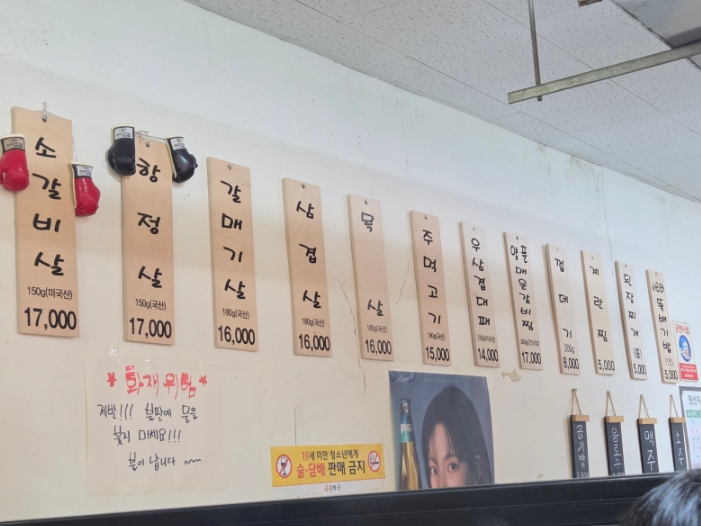 소갈비살
150g(미국산)
17,000
항정살
150g(국산)
17,000
갈매기살
180g(국산)
16,000
삼겹살
180g(국산)
16,000
목살
180g(국산)
16,000
주먹고기
180g(국산)
15,000
우삼겹대패
14,000
양푼매운갈비찜
17,000
껍데기
200g
8,000
계란찜
5,000
된장찌개
5,000
뚝배기밥
5,000
화재위험
제발!!! 불판에 물을
붓지 마세요!!!
불이 납니다 ~~~
19세 미만 청소년에게
술·담배 판매 금지
공기밥
음료수
맥주
소주